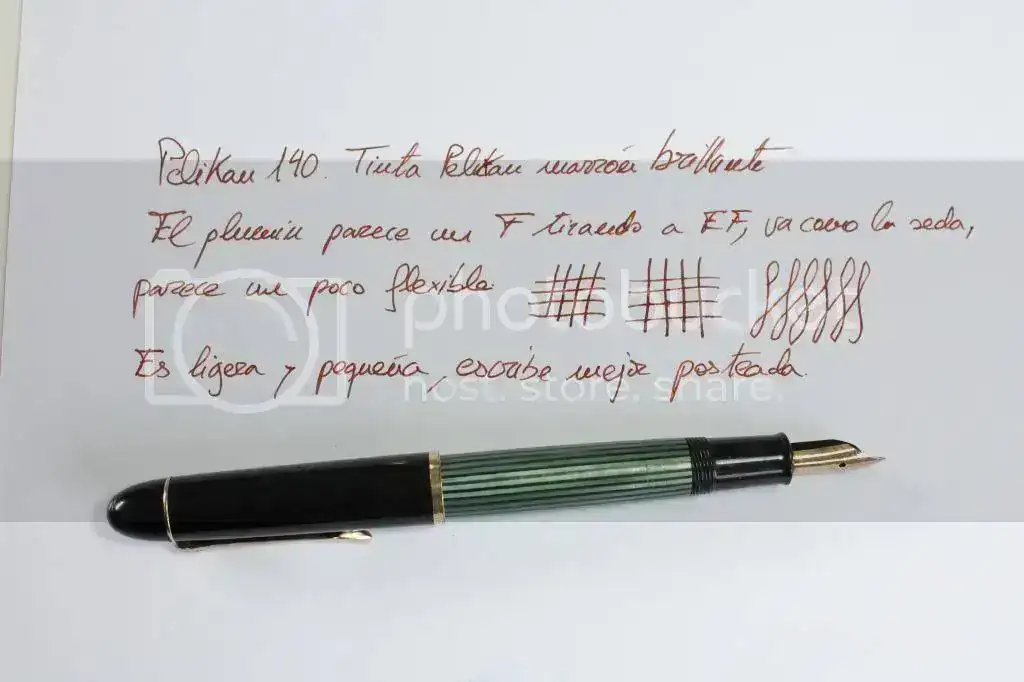 Pelikan 140. Tinta Pelikan marrón brillante
El plumin parece un F tirando a EF, va como la seda,
parece un poco flexible.
photobucket
Es ligera y pequeña, escribe mejor posteada.
host. store. share.